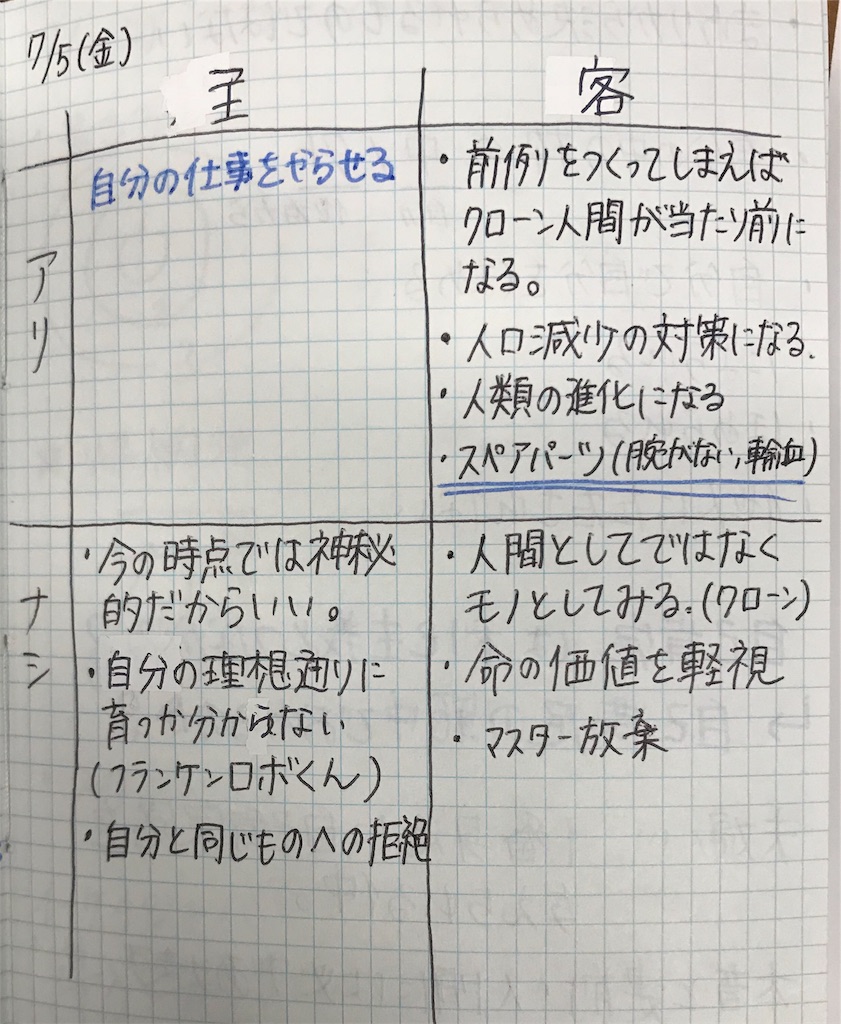 7/5(金)
主
客
アリ
自分の仕事をやらせる
・前例りをつくってしまえば
クローン人間が当たり前に
なる。
・人口減少の対策になる.
・人類の進化になる
・スペアパーツ(腕がない,輸血)
ナシ
・今の時点では神秘
的だからいい。
・自分の理想通りに
育つか分からない
(フランケンロボくん)
・自分と同じものへの拒絶
・人間としてではなく
モノとしてみる.(クローン)
・命の価値を軽視
・マスター放棄